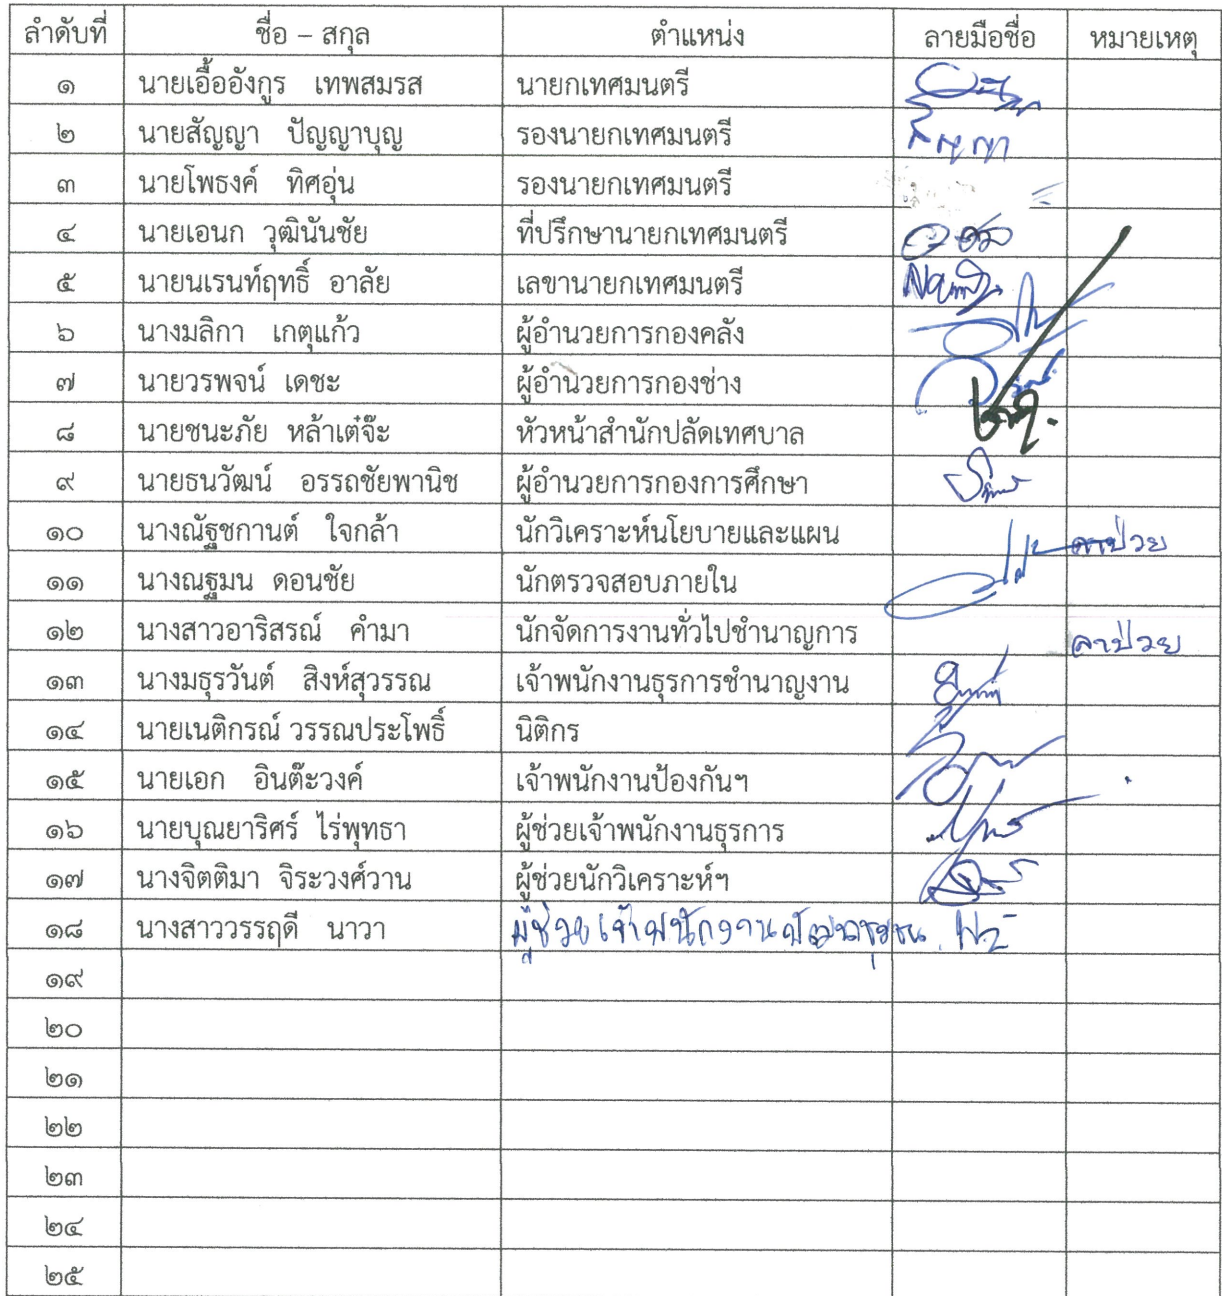 ลำดับที่ ชื่อ – สกุล ตำแหน่ง ลายมือชื่อ หมายเหตุ
๑ นายเอื้ออังกูร เทพสมรส นายกเทศมนตรี
๒ นายสัญญา ปัญญาบุญ รองนายกเทศมนตรี สัญญา
๓ นายโพธงค์ ทิศอุ่น รองนายกเทศมนตรี
๔ นายเอนก วุฒินันชัย ที่ปรึกษานายกเทศมนตรี
๕ นายนเรนท์ฤทธิ์ อาลัย เลขานายกเทศมนตรี
๖ นางมลิกา เกตุแก้ว ผู้อำนวยการกองคลัง
๗ นายวรพจน์ เดชะ ผู้อำนวยการกองช่าง
๘ นายชนะภัย หล้าเต๋จ๊ะ หัวหน้าสำนักปลัดเทศบาล
๙ นายธนวัฒน์ อรรถชัยพานิช ผู้อำนวยการกองการศึกษา
๑๐ นางณัฐชกานต์ ใจกล้า นักวิเคราะห์นโยบายและแผน ลาป่วย
๑๑ นางณฐมน ดอนชัย นักตรวจสอบภายใน
๑๒ นางสาวอาริสรณ์ คำมา นักจัดการงานทั่วไปชำนาญการ ลาป่วย
๑๓ นางมธุรวันต์ สิงห์สุวรรณ เจ้าพนักงานธุรการชำนาญงาน
๑๔ นายเนติกรณ์ วรรณประโพธิ์ นิติกร
๑๕ นายเอก อินต๊ะวงค์ เจ้าพนักงานป้องกันฯ
๑๖ นายบุณยาริศร์ ไร่พุทธา ผู้ช่วยเจ้าพนักงานธุรการ
๑๗ นางจิตติมา จิระวงศ์วาน ผู้ช่วยนักวิเคราะห์ฯ
๑๘ นางสาววรรฤดี นาวา ผู้ช่วยเจ้าพนักงานพัฒนาชุมชน
๑๙
๒๐
๒๑
๒๒
๒๓
๒๔
๒๕